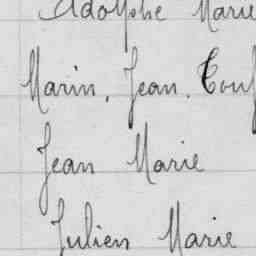 Adolphe Marie
Marin, Jean,
Jean Marie
Julien Marie